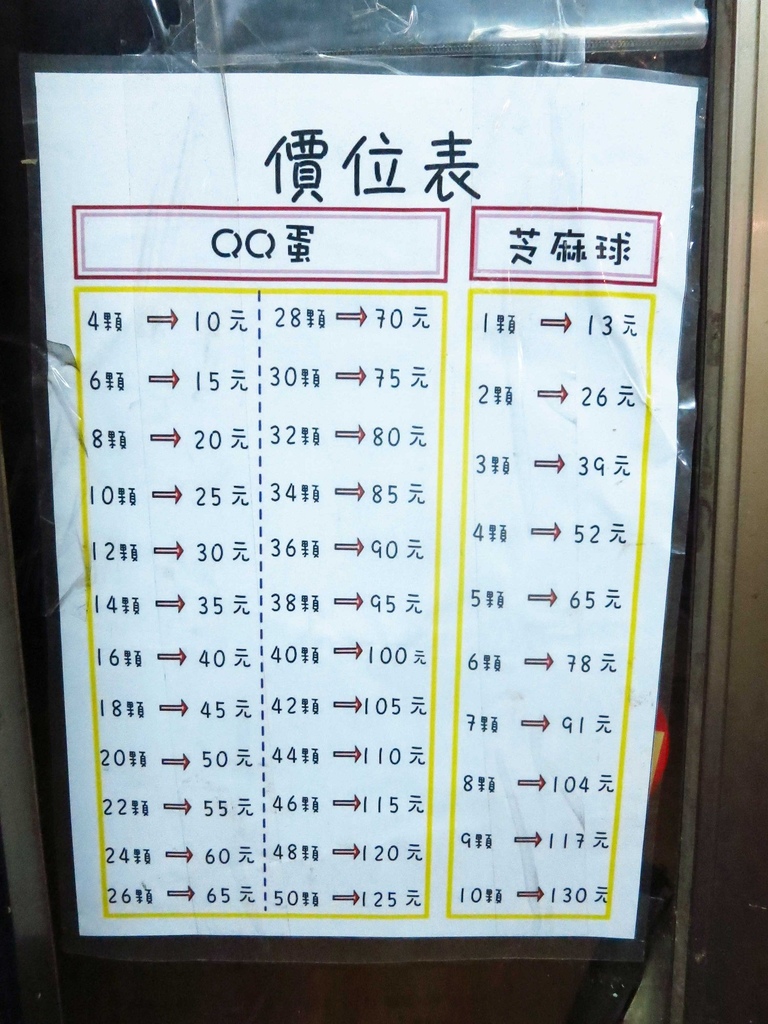 價位表
QQ蛋
4顆 ⇒ 10元
6顆 ⇒ 15元
8顆 ⇒ 20元
10顆 ⇒ 25元
12顆 ⇒ 30元
14顆 ⇒ 35元
16顆 ⇒ 40元
18顆 ⇒ 45元
20顆 ⇒ 50元
22顆 ⇒ 55元
24顆 ⇒ 60元
26顆 ⇒ 65元
28顆 ⇒ 70元
30顆 ⇒ 75元
32顆 ⇒ 80元
34顆 ⇒ 85元
36顆 ⇒ 90元
38顆 ⇒ 95元
40顆 ⇒ 100元
42顆 ⇒ 105元
44顆 ⇒ 110元
46顆 ⇒ 115元
48顆 ⇒ 120元
50顆 ⇒ 125元
芝麻球
1顆 ⇒ 13元
2顆 ⇒ 26元
3顆 ⇒ 39元
4顆 ⇒ 52元
5顆 ⇒ 65元
6顆 ⇒ 78元
7顆 ⇒ 91元
8顆 ⇒ 104元
9顆 ⇒ 117元
10顆 ⇒ 130元